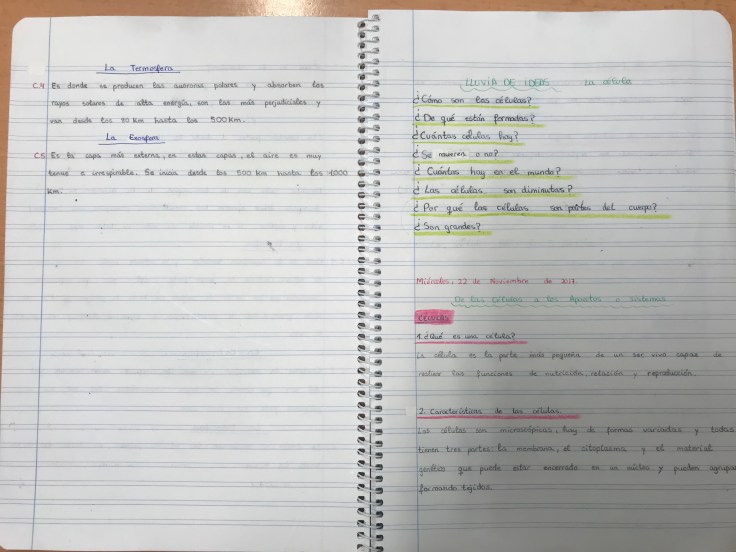 La Termosfera
C.4 Es donde se producen las auroras polares y absorben los
rayos solares de alta energía, son los más perjudiciales y
van desde los 90 Km hasta los 500 Km.
La Exosfera
C.5 Es la capa más externa, en estas capas, el aire es muy
tenue e irrespirable. Se inicia desde los 500 km hasta los 1000
km.
LLUVIA DE IDEAS La célula
¿Cómo son las células?
¿De qué están formadas?
¿Cuántas células hay?
¿Se mueven o no?
¿Cuántas hay en el mundo?
¿Las células son diminutas?
¿Por qué las células son partes del cuerpo?
¿Son grandes?
Miércoles, 22 de Noviembre de 2017.
De las células a los Aparatos o sistemas
CÉLULAS
1. ¿Qué es una célula?
La célula es la parte más pequeña de un ser vivo capaz de
realizar las funciones de nutrición, relación y reproducción.
2. Características de las células.
Las células son microscópicas, hay de formas variadas y todas
tienen tres partes: la membrana, el citoplasma y el material
genético que puede estar encerrado en un núcleo y pueden agrupar
formando tejidos.